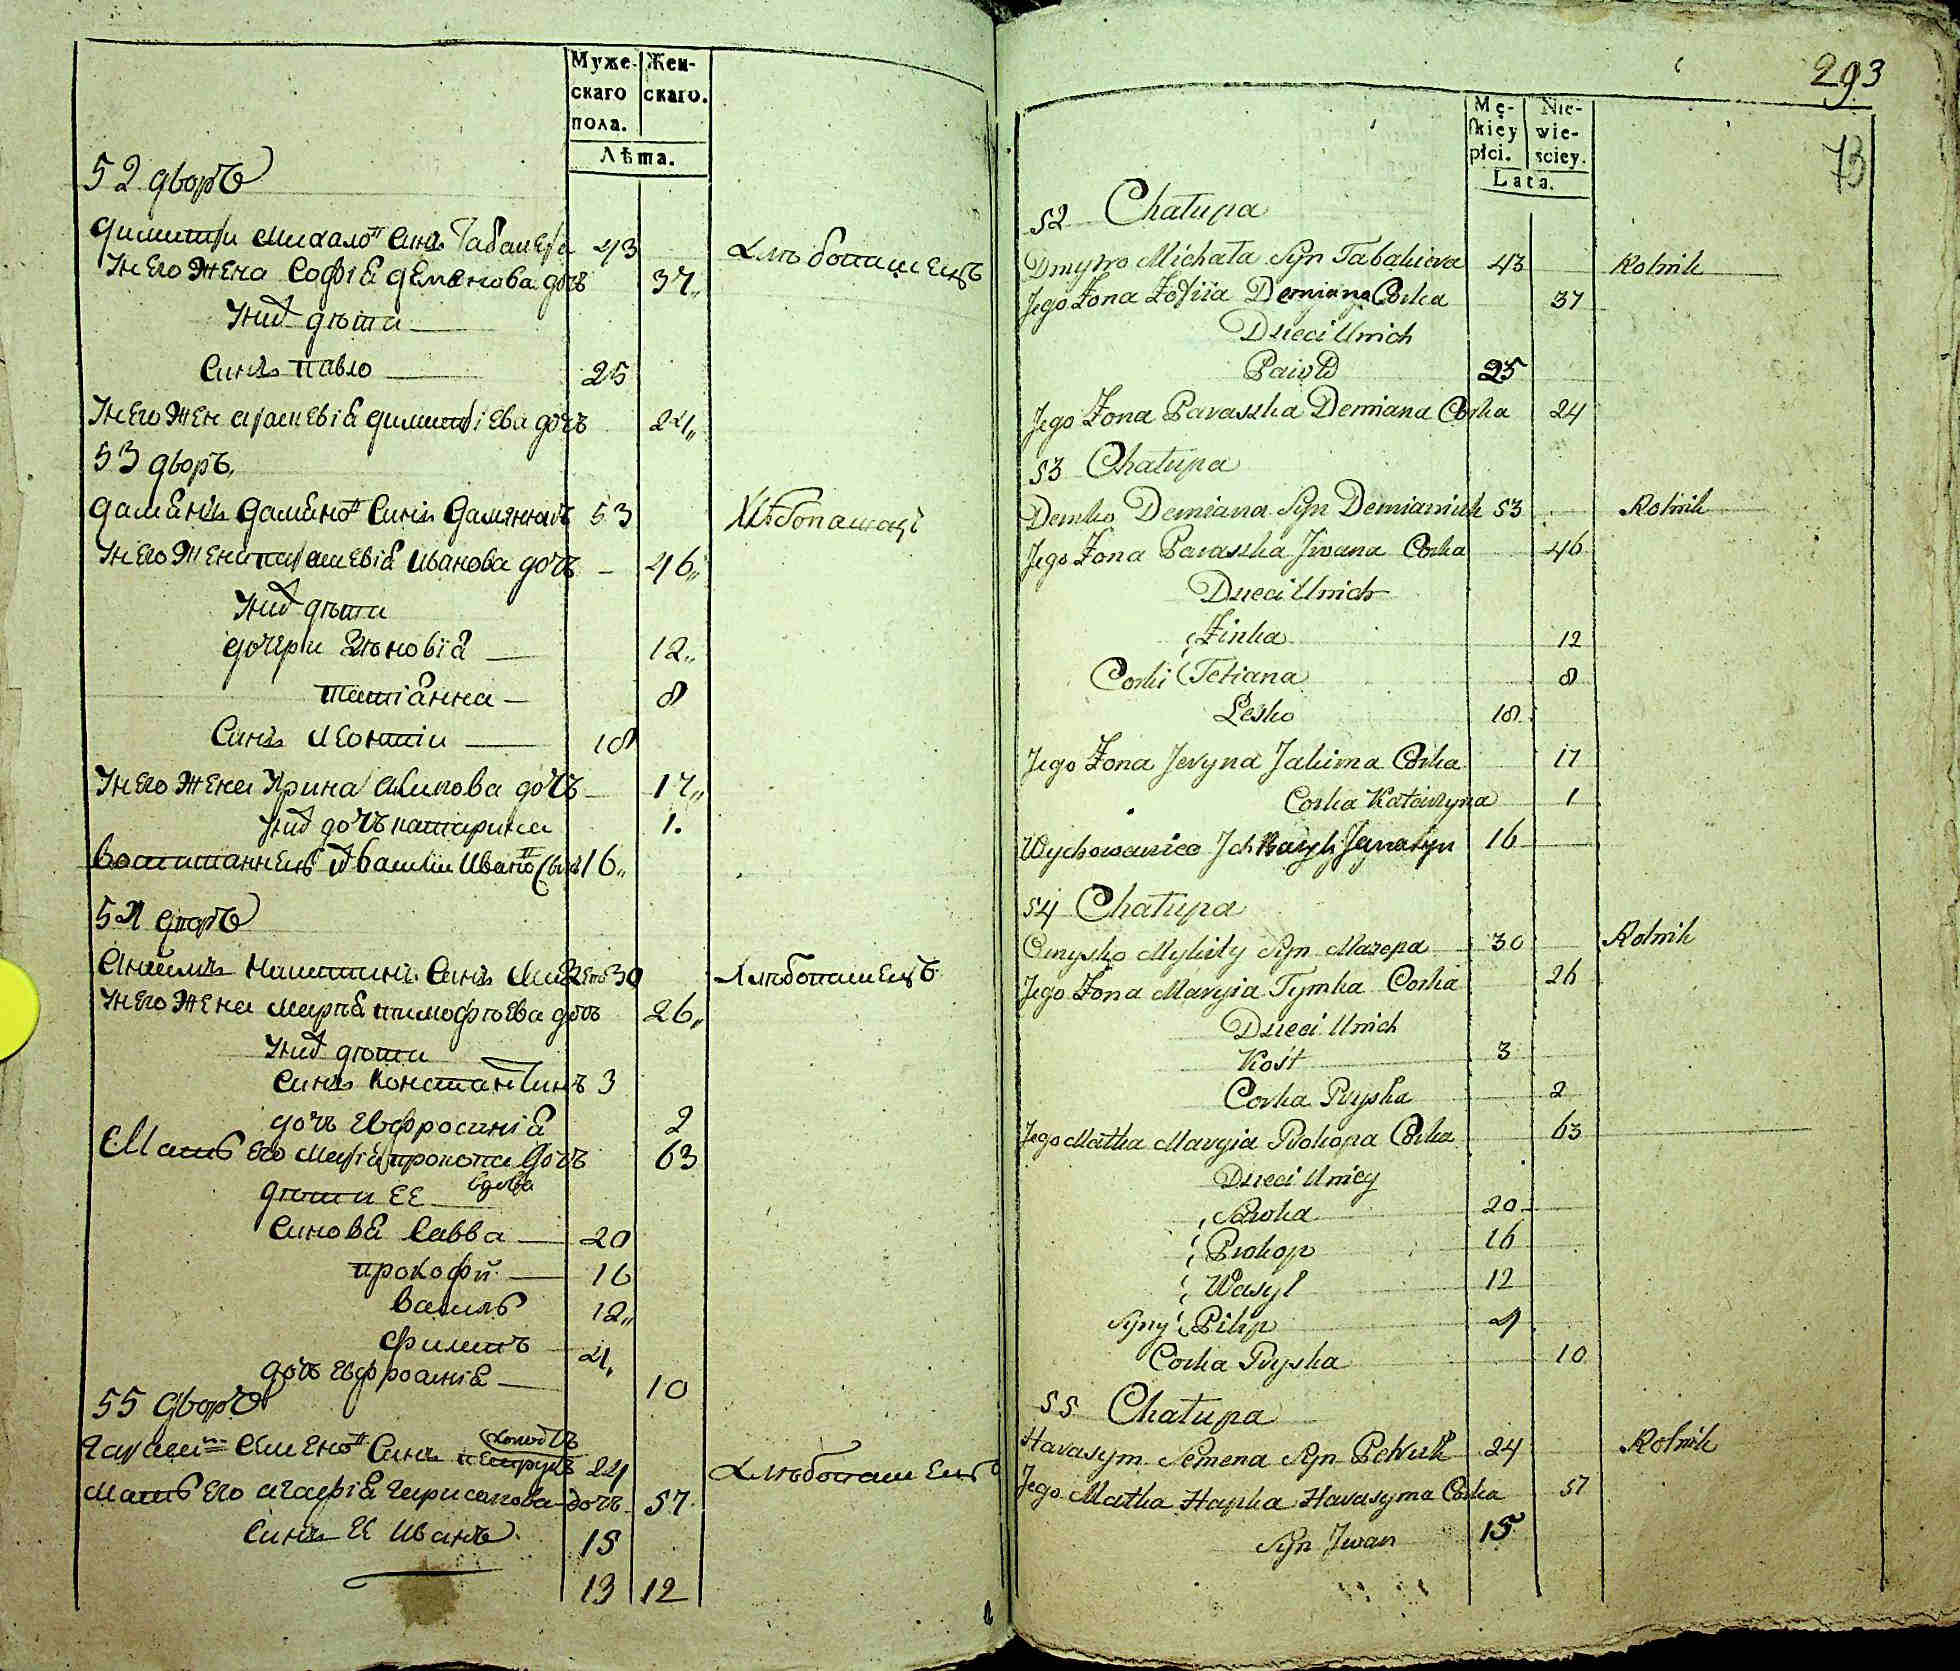 Муже- Жен-
скаго скаго.
пола.
Лѣта.
52 дворъ
Димитри Михало сынъ 43 хлѣбопашецъ
У него жена Софія Деменова дочь 37
У них дѣти
Синъ Павло 25
У него жена Димитріева дочь 24
53 дворъ
Дамянъ сынъ 53 Хлѣбопашец
У него жена Ивanova дочь 46
У них дѣти
дочери Зѣновія 12
Татіанна 8
Синъ Леонтіи 18
У него жена Ирина Акимова дочь 17
У них дочь Катарина 1.
16
54 дворъ
Синъ 30 хлѣбопашецъ
У него жена Марья Тимофѣева дочь 26
У них дѣти
Синъ Константинъ 3
дочь Евфросинія 2
Мать его Марія Прокопа дочь 63
вдова
дѣти ее
Синовя Савва 20
Прокофій 16
Василь 12
Филипъ 4
дочь Евфросиніа 10
55 дворъ
Семено Синъ 24 хлѣбопашецъ
Мать его Агафія дочь 57
Синъ ее Иванъ 15
13 12
293
73
Mę- Nie-
skiey wie-
płci. sciey.
Lata.
52 Chałupa
Dmytro Michała Syn 43 Rolnik
Jego Żona Zofiia Demiana Corka 37
Dzieci Unich
25
Jego Żona Paraszka Demiana Corka 24
53 Chałupa
Demko Demiana Syn Demianiuk 53 Rolnik
Jego Żona Paraszka Jwana Corka 46
Dzieci Unich
Zinka 12
Corki Tetiana 8
Lesko 18
Jego Żona Jeryna Jakima Corka 17
Corka Katarzyna 1
Wychowaniec Jch 16
54 Chałupa
Omysko Mykity Syn Mazepa 30 Rolnik
Jego Żona Maryia Tymka Corka 26
Dzieci Unich
Kost 3
Corka Pryska 2
Jego Matka Maryia Prokopa Corka 63
Dzieci Uniey
Sawka 20
Prokop 16
Wasyl 12
Syny Pilip 4
Corka Pryska 10
55 Chałupa
Harasym Semena Syn Petruk 24 Rolnik
Jego Matka Hapka Harasyma Corka 57
Syn Jwan 15